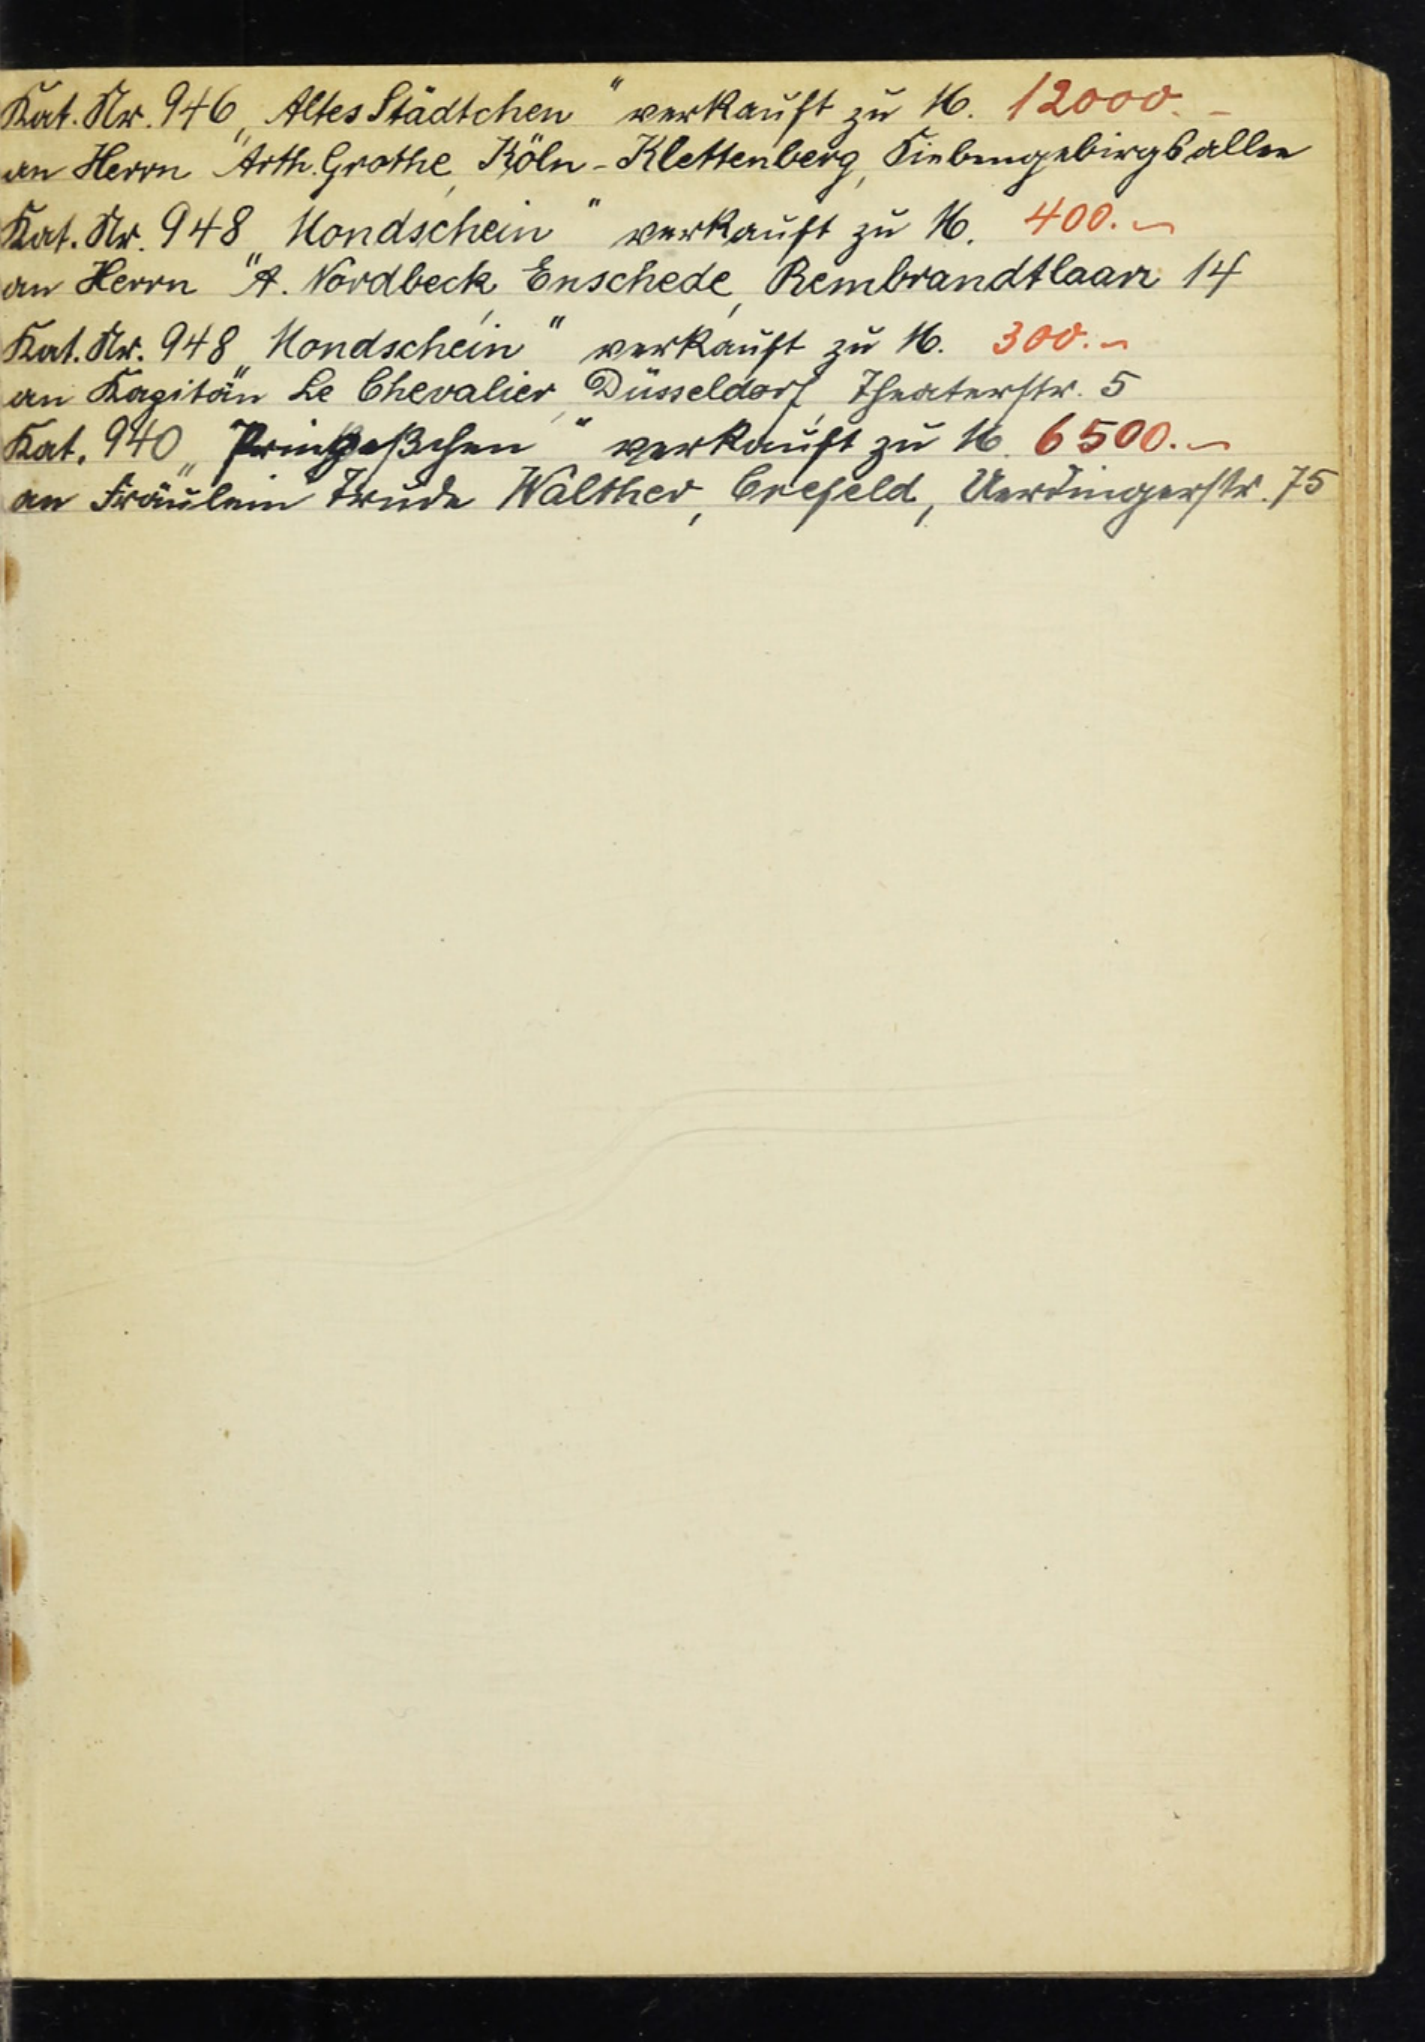 Kat. Nr. 946 „Altes Städtchen" verkauft zu M. 12000.-
an Herrn Arth. Grothe, Köln-Klettenberg, Siebengebirgsallee
Kat. Nr. 948 „Mondschein" verkauft zu M. 400.-
an Herrn A. Nordbeck, Enschede, Rembrandtlaan 14
Kat. Nr. 948 „Mondschein" verkauft zu M. 300.-
an Kapitän Le Chevalier, Düsseldorf, Theaterstr. 5
Kat. 940 „Prinzeßchen" verkauft zu M. 6500.-
an Fräulein Trude Walther, Crefeld, Uerdingerstr. 75